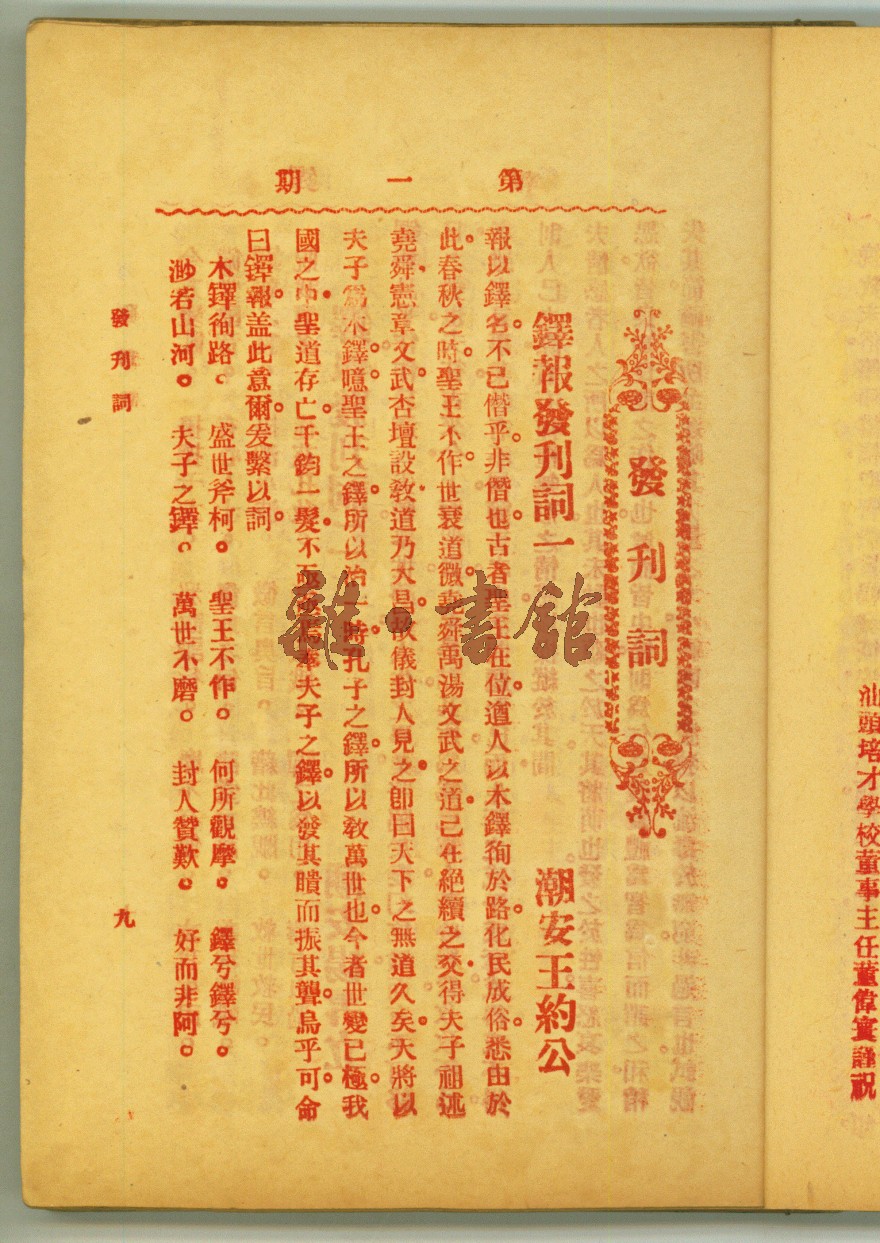 汕頭培才學校董事主任董偉寰謹祝
第一期
發刊詞
鐸報發刊詞一
潮安王約公
報以鐸名不已僭乎非僭也古者聖王在位遒人以木鐸徇於路化民成俗悉由於
此春秋之時聖王不作世衰道微堯舜禹湯文武之道已在絕續之交得夫子祖述
堯舜憲章文武杏壇設敎道乃大昌故儀封人見之卽曰天下之無道久矣天將以
夫子爲木鐸噫聖王之鐸所以治一時孔子之鐸所以敎萬世也今者世變已極我
國之中聖道存亡千鈞一髮不亟亟焉奉夫子之鐸以發其聵而振其聾烏乎可命
曰鐸報盖此意爾爰繫以詞
木鐸徇路。 盛世斧柯。 聖王不作。 何所觀摩。 鐸兮鐸兮。
渺若山河。 夫子之鐸。 萬世不磨。 封人贊歎。 好而非阿。
發刊詞
九
雜·書館